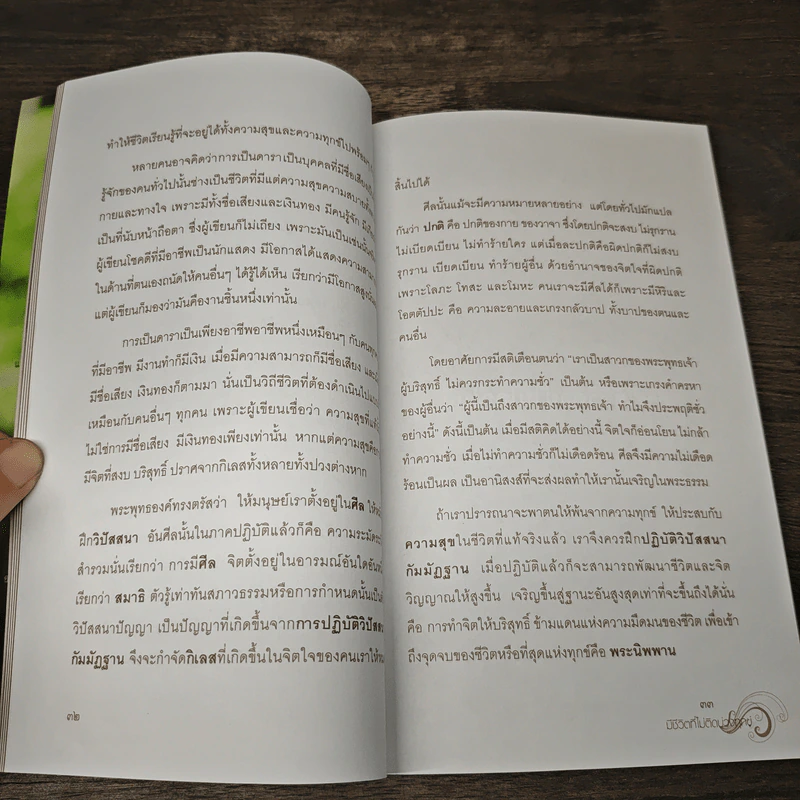 ทำให้ชีวิตเรียนรู้ที่จะอยู่ได้ทั้งความสุขและความทุกข์ไปพร้อม
หลายคนอาจคิดว่าการเป็นดาราเป็นบุคคลที่มีชื่อเสียง
รู้จักของคนทั่วไปนั้นช่างเป็นชีวิตที่มีแต่ความสุขความสบาย
กายและทางใจ เพราะมีทั้งชื่อเสียงและเงินทอง มีคนรู้จัก
เป็นที่นับหน้าถือตา ซึ่งผู้เขียนก็ไม่เถียง เพราะมันเป็นเช่นนั้น
ผู้เขียนโชคดีที่มีอาชีพเป็นนักแสดง มีโอกาสได้แสดงความ
ในด้านที่ตนเองถนัดให้คนอื่นๆ ได้รู้ได้เห็น เรียกว่ามีโอกาส
แต่ผู้เขียนก็มองว่ามันคืองานชิ้นหนึ่งเท่านั้น
การเป็นดาราเป็นเพียงอาชีพอาชีพหนึ่งเหมือนๆ กับคน
ที่มีอาชีพ มีงานทำก็มีเงิน เมื่อมีความสามารถก็มีชื่อเสียง
มีชื่อเสียง เงินทองก็ตามมา นั่นเป็นวิถีชีวิตที่ต้องดำเนินไป
เหมือนกับคนอื่นๆ ทุกคน เพราะผู้เขียนเชื่อว่า ความสุขที่
ไม่ใช่การมีชื่อเสียง มีเงินทองเพียงเท่านั้น หากแต่ความสุข
มีจิตที่สงบ บริสุทธิ์ ปราศจากกิเลสทั้งหลายทั้งปวงต่างหาก
พระพุทธองค์ทรงตรัสว่า ให้มนุษย์เราตั้งอยู่ในศีล
ฝึกวิปัสสนา อันศีลนั้นในภาคปฏิบัติแล้วก็คือ ความระมัด
สำรวมนั่นเรียกว่า การมีศีล จิตตั้งอยู่ในอารมณ์อันใดอัน
เรียกว่า สมาธิ ตัวรู้เท่าทันสภาวธรรมหรือการกำหนดนั้น
วิปัสสนาปัญญา เป็นปัญญาที่เกิดขึ้นจากการปฏิบัติวิปัสส
กัมมัฏฐาน จึงจะกำจัดกิเลสที่เกิดขึ้นในจิตใจของคนเราให้
๓๒
สิ้นไปได้
ศีลนั้นแม้จะมีความหมายหลายอย่าง แต่โดยทั่วไปมักแปล
กันว่า ปกติ คือ ปกติของกาย ของวาจา ซึ่งโดยปกติจะสงบ ไม่รุกราน
ไม่เบียดเบียน ไม่ทำร้ายใคร แต่เมื่อละปกติคือผิดปกติก็ไม่สงบ
รุกราน เบียดเบียน ทำร้ายผู้อื่น ด้วยอำนาจของจิตใจที่ผิดปกติ
เพราะโลภะ โทสะ และโมหะ คนเราจะมีศีลได้ก็เพราะมีหิริและ
โอตตัปปะ คือ ความละอายและเกรงกลัวบาป ทั้งบาปของตนและ
คนอื่น
โดยอาศัยการมีสติเตือนตนว่า "เราเป็นสาวกของพระพุทธเจ้า
ผู้บริสุทธิ์ ไม่ควรกระทำความชั่ว" เป็นต้น หรือเพราะเกรงคำครหา
ของผู้อื่นว่า "ผู้นี้เป็นถึงสาวกของพระพุทธเจ้า ทำไมจึงประพฤติชั่ว
อย่างนี้" ดังนี้เป็นต้น เมื่อมีสติคิดได้อย่างนี้ จิตใจก็อ่อนโยน ไม่กล้า
ทำความชั่ว เมื่อไม่ทำความชั่วก็ไม่เดือดร้อน ศีลจึงมีความไม่เดือด
ร้อนเป็นผล เป็นอานิสงส์ที่จะส่งผลทำให้เรานั้นเจริญในพระธรรม
ถ้าเราปรารถนาจะพาตนให้พ้นจากความทุกข์ ให้ประสบกับ
ความสุขในชีวิตที่แท้จริงแล้ว เราจึงควรฝึกปฏิบัติวิปัสสนา
กัมมัฏฐาน เมื่อปฏิบัติแล้วก็จะสามารถพัฒนาชีวิตและจิต
วิญญาณให้สูงขึ้น เจริญขึ้นสู่ฐานะอันสูงสุดเท่าที่จะขึ้นถึงได้นั่น
คือ การทำจิตให้บริสุทธิ์ ข้ามแดนแห่งความมืดมนของชีวิต เพื่อเข้า
ถึงจุดจบของชีวิตหรือที่สุดแห่งทุกข์คือ พระนิพพาน
๓๓
มีชีวิตที่ไม่ติดบ่วงทุกข์